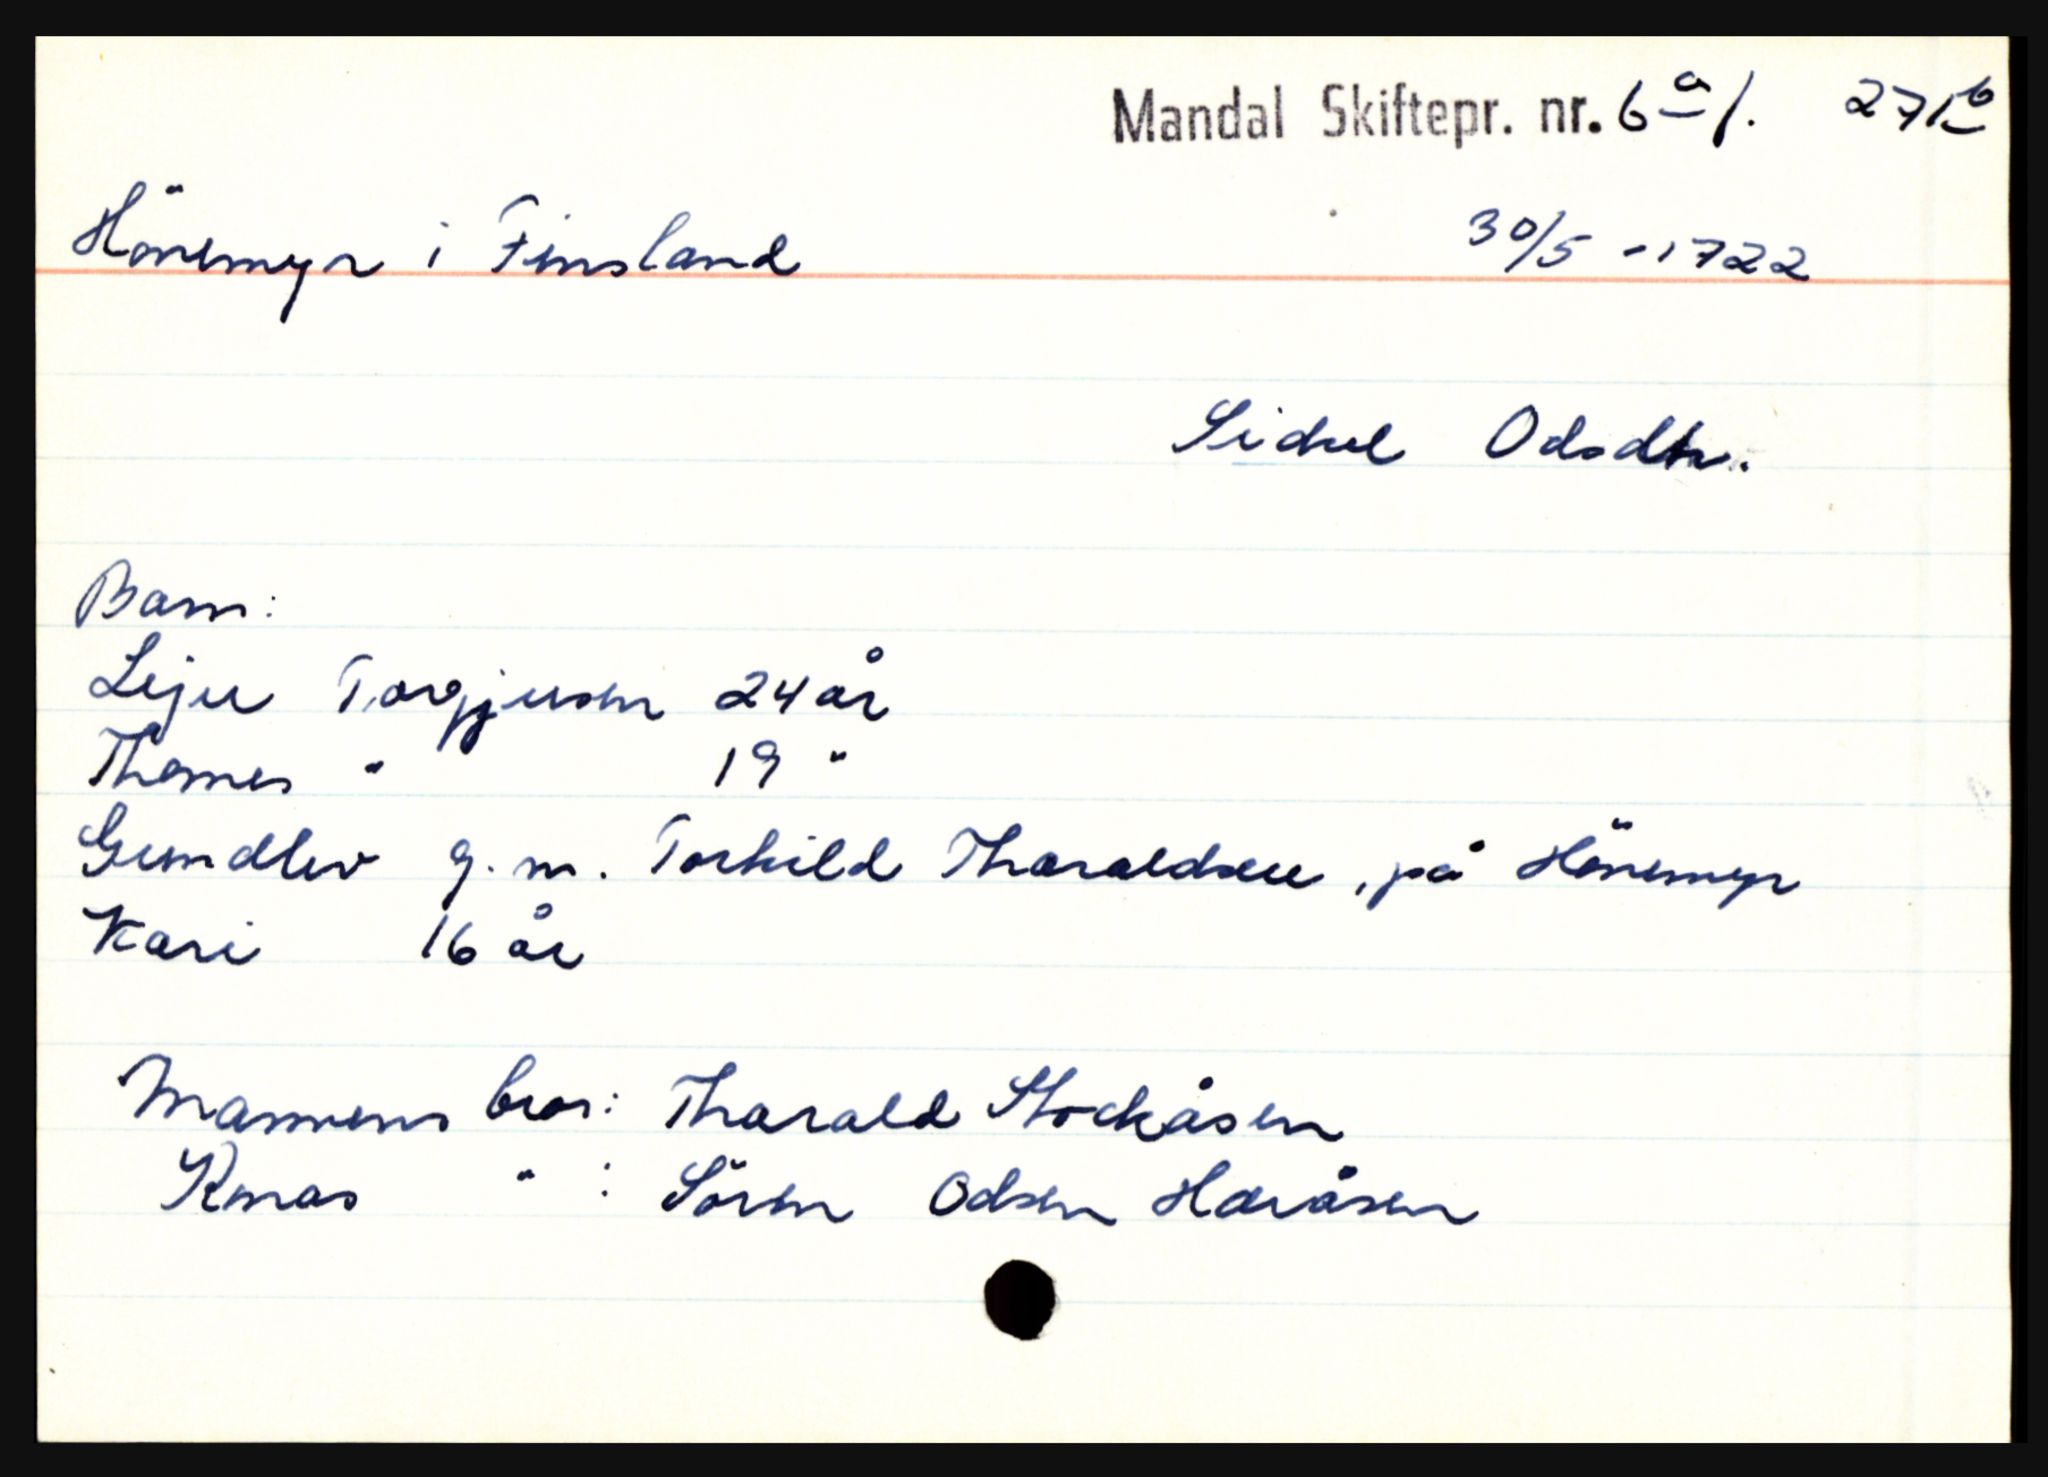 Mandal Skiftepr. nr. 6a f. 271b
Hönemyr i Finsland 30/5 - 1722
Sidsel Odsdtr.
Barn:
Leju Torgjusen 24 år
Thomes " 19 "
Gundlev g.m. Torkild Tharaldsen, på Hönemyr
Kari 16 år
Mannens bror: Tharald Stockåsen
Knas " : Sören Odsen Haråsen